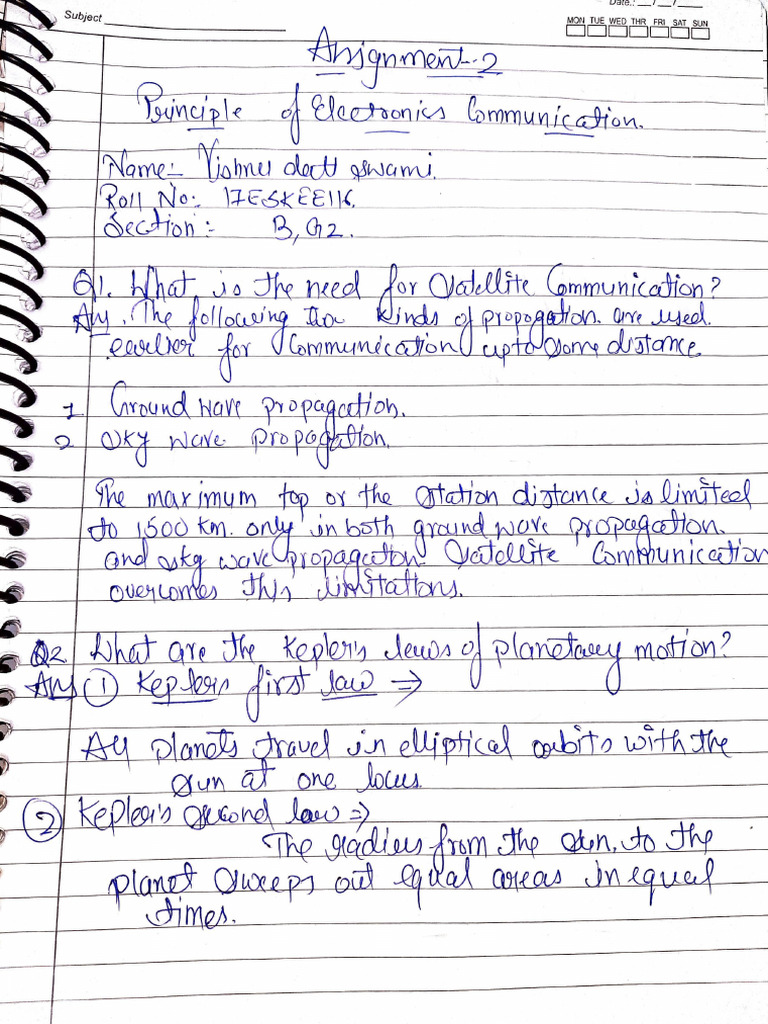 Subject
Date.: __/__/__
MON TUE WED THR FRI SAT SUN
Assignment-2
Principle of Electronics Communication.
Name:- Vishnu datt swami.
Roll No:- 17ESKEE116.
Section:- B, G2.
Q1. What is the need for Satellite Communication?
Ans. The following two kinds of propogation are used
earlier for Communication upto some distance
1 Ground wave propagation.
2 Sky wave propagation.
The maximum top or the station distance is limited
to 1500 km. only in both ground wave propagation.
and sky wave propagation Satellite Communication
overcomes this limitations.
Q2 What are the Kepler's laws of planetary motion?
Ans ① Keplers first law ⇒
All planets travel in elliptical orbits with the
sun at one locus.
② Kepler's second law ⇒
The radius from the sun, to the
planet sweeps out equal areas in equal
times.